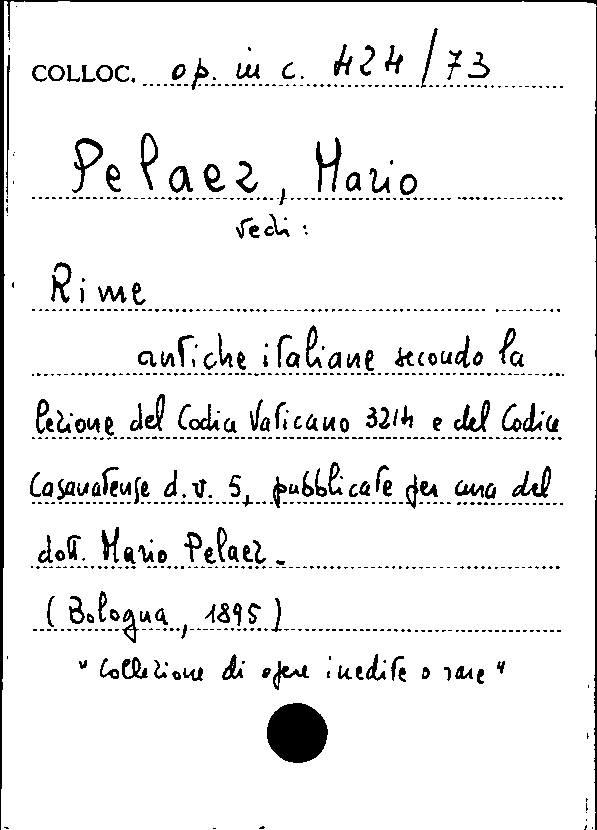 COLLOC. op. in c. 424/73
Pelaez, Mario
vedi:
Rime
antiche italiane secondo la
lezione del Codice Vaticano 3214 e del Codice
Casanatense d.v. 5, pubblicate per cura del
dott. Mario Pelaez.
(Bologna, 1895)
"Collezione di opere inedite o rare"